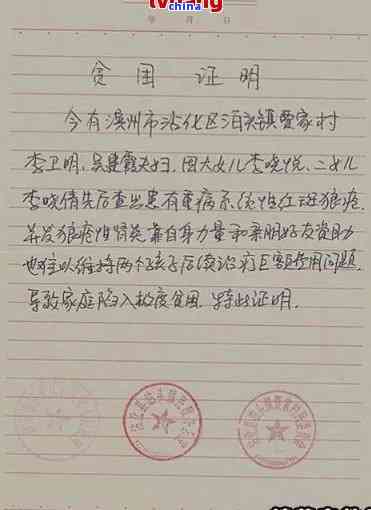 tvliang
china
年 月 日
贫困证明
今有滨州市沾化区泊头镇贾家村
李卫明、吴建霞夫妇,因大女儿李晓悦,二女儿
李晓倩先后查出患有重病系统性红斑狼疮
并发狼疮性肾炎靠自身力量和亲朋好友资助
也难以维持两个孩子后续治疗巨额费用问题,
导致家庭陷入极度贫困,特此证明.